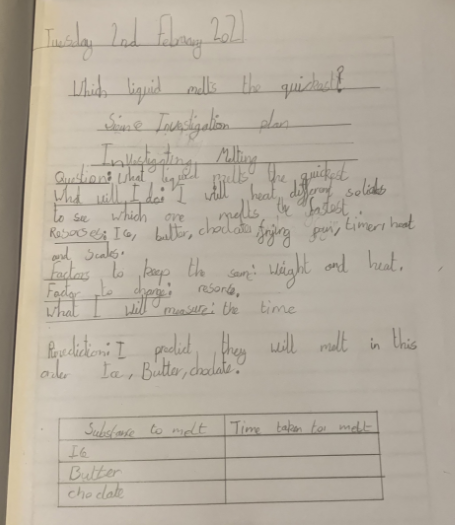 Tuesday 2nd February 2021
Which liquid melts the quickest?
Sine Investigation plan
Investigating Melting
Question: What liquid melts the quickest
What will I do: I will heat different solids
to see which one melts the fastest.
Resorses: Ice, butter, choclate frying pan, timer, heat
and scales.
Factors to keep the same: weight and heat.
Factor to change: resorse.
What I will measure: the time
Prediction: I predict they will melt in this
order Ice, Butter, choclate.
Substanse to melt Time taken to melt
Ice
Butter
choclate